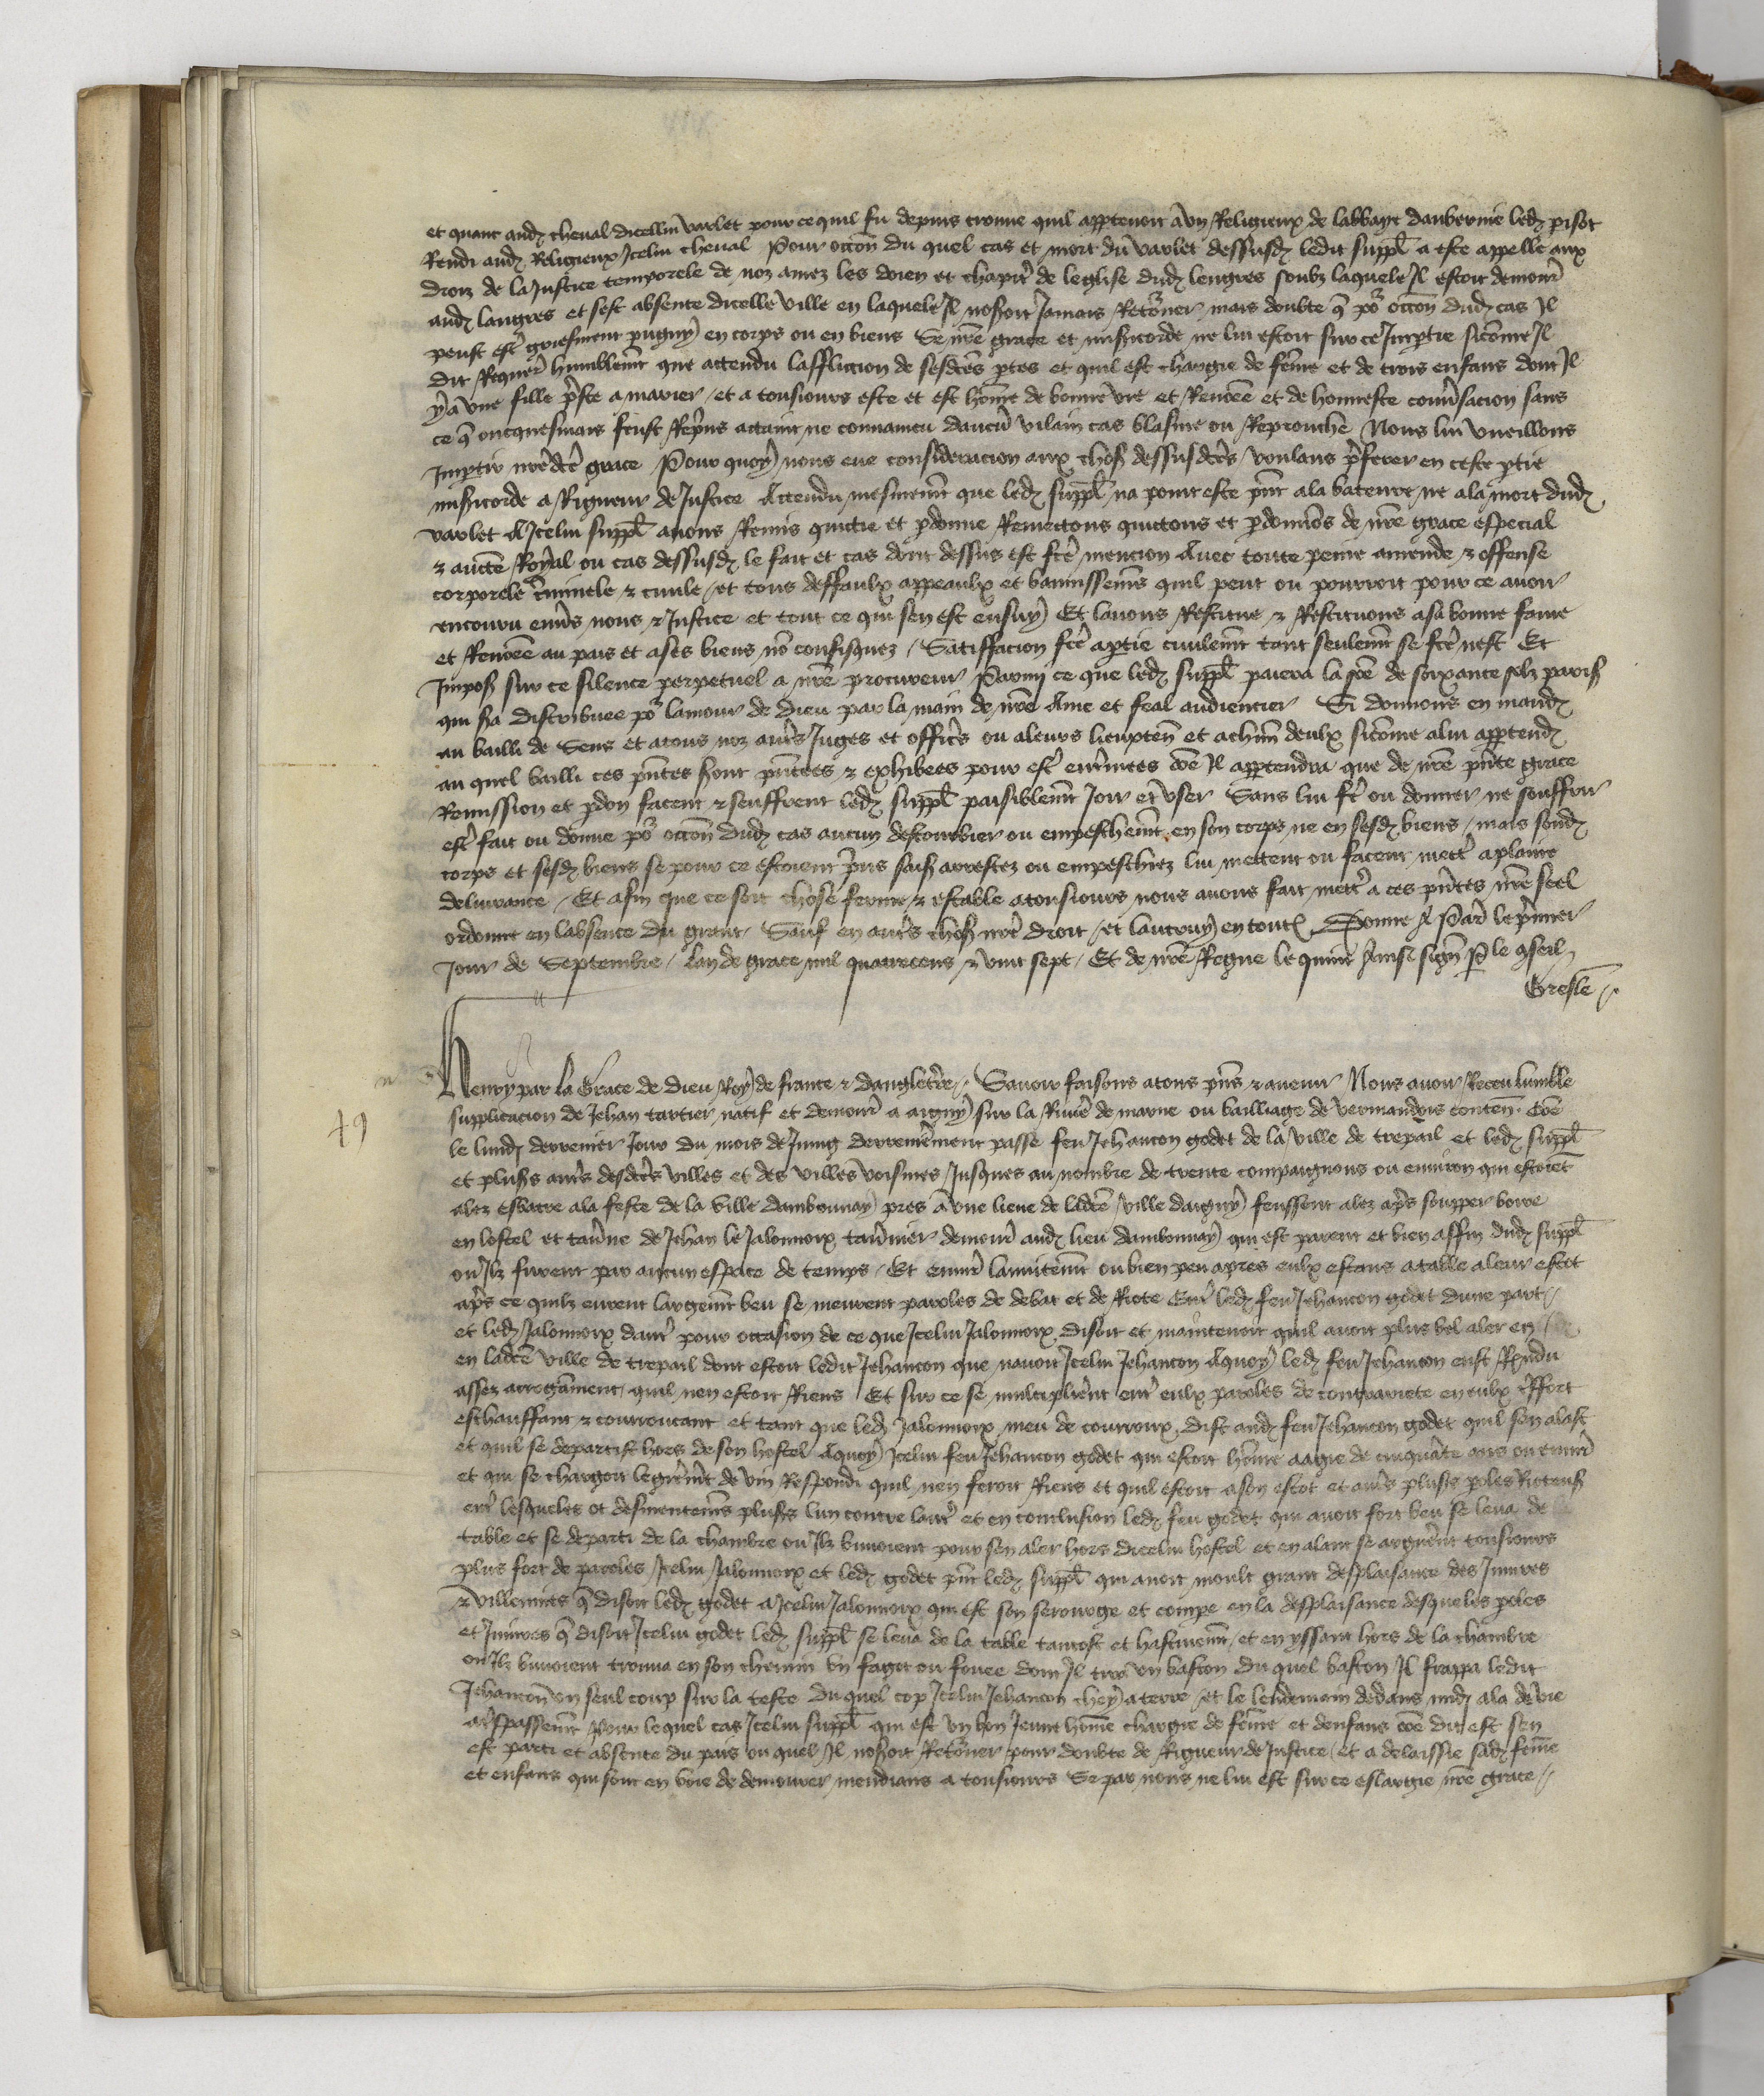 et quant aud cheval dicellui varlet pour ce quil fu depuis trouve quil appartenoit a un Religieux de labbaye dauberive led pisot
Rendi aud Religieux Icelui cheval Pour occon du quel cas et mort du varlet dessusd ledit suppl a este appelle aux
droiz de la Justice temporele de noz amez les doien et chapitre de leglise dud lengres soubz laquele Il estoit demour
aud langres et sest absente dicelle ville en laquele Il noseroit Jamais Retorner mais doubte q por occon dud cas Il
peust estre griefment pugny en corps ou en biens Se nre grace et misericorde ne lui estoit sur ce Impartie sicomme Il
dit Requerant humblemt que attendu lafflicion de sesdces pertes et quil est chargie de feme et de trois enfans dont Il
y a une fille preste a marier et a tousiours este et est home de bonne vie et Renomee et de honneste conversacion sans
ce q oncquesmais feust Repris attaint ne convaincu daucun vilain cas blasme ou Reprouche Nous lui vueillons
Impartir nredce grace Pour quoy nous eue consideracion aux choses dessusdces voulans preferer en ceste partie
misericorde a Rigueur de Justice Attendu mesmemt que led suppl na point este pnt a la bateure ne a la mort dud
varlet A Icelui suppl avons Remis quictie et pardonne Remettons quictons et pardonnons de nre grace especial
& aucte Royal ou cas dessusd le fait et cas dont dessus est fce mencion Avec toute peine amende & offense
corporele criminele & civile et tous deffaulx appeaulx et bannissemens quil peut ou pourroit pour ce avoir
encouru envers nous & Justice et tout ce qui sen est ensuy Et lavons Restitue & Restituons a sa bonne fame
et Renomee au pais et a ses biens no confisquez Satisfacion fce a partie civilemt tant seulemt se fce nest Et
Imposons sur ce silence perpetuel a nre procureur Parmi ce que led suppl paiera la some de soixante solz paris
qui sera distribuee por lamour de dieu par la main de nre Ame et feal audiencier Si donnons en mand
au bailli de Sens et a tous noz autres Juges et officiers ou a leurs lieuxten et a chun deulx sicome a lui appartend
au quel bailli ces pntes seront pntees & exhibees pour estre enterinees come Il appartendra que de nre pnte grace
Remission et pardon facent & seuffrent led suppl paisiblemt Joir et user Sans lui fere ou donner ne souffrir
estre fait ou donne por occon dud cas aucun destourbier ou empeschemt en son corps ne en sesd biens mais sond
corps et sesd biens se pour ce estoient prins saisis arrestez ou empeschiez lui mettent ou facent mettre a plaine
delivrance Et afin que ce soit chose ferme & estable a tousiours nous avons fait mettre a ces pntes nre seel
ordonne en labsence du grant Sauf en autres choses nre droit et lautruy en toutes Donne a Paris le premier
Jour de Septembre Lan de grace mil quatrecens & vint sept Et de nre Regne le quint Ainsi signe Par le conseil
Gresle
Henry par la Grace de Dieu Roy de france & dangleterre Savoir faisons a tous pns & avenir Nous avoir Receu lumble
supplicacion de Jehan tartier natif et demour a argny sur la Riviere de marne ou bailliage de vermandois conten Come
le lundi derrenier Jour du mois de Juing derrenierement passe feu Jehancon godet de la ville de trepail et led suppl
et plusrs autres desdces villes et des villes voisines Jusques au nombre de trente compaignons ou environ qui estoiet
alez esbatre a la feste de la ville dambonnay pres a une lieue de ladce ville dargny feussent alez apres soupper boire
en lostel et taverne de Jehan le Jalonnoix tavernier demour aud lieu dambonnay qui est parent et bien affin dud suppl
ou Ilz furent par aucun espace de temps Et environ lanuitemt ou bien peu apres eulx estans a table a leur escot
apres ce quilz eurent largemt beu se meurent paroles de debat et de Riote Entre led feu Jehancon godet dune part
et led Jalonnoix dautre pour occasion de ce que Icelui Jalonnoix disoit et maintenoit quil avoit plus bel aler en
en ladce ville de trepail dont estoit ledit Jehancon que navoit Icelui Jehancon A quoy led feu Jehancon eust Respondu
assez arrogamment quil nen estoit Riens Et sur ce se multiplierent entre eulx paroles de contrariete en eulx effort
eschauffant & courroucant et tant que led Jalonnoix meu de courroux dist aud feu Jehancon godet quil sen alast
et quil se departist hors de son hostel A quoy Icelui feu Jehancon godet qui estoit home aagie de cinquate ans ou environ
et qui se chargoit legierement de vin Respondi quil nen feroit Riens et quil estoit a son escot et autres plusrs paroles Rioteuses
entre lesqueles ot desmentemens plusrs lun contre lautre et en conclusion led feu godet qui avoit fort beu se leva de
table et se departi de la chambre ou Ilz buvoient pour sen aler hors dicelui hostel et en alant se arguerent tousiours
plus fort de paroles Icelui Jalonnoix et led godet pnt led suppl qui avoit moult grant desplaisance des Iniures
& villennies q disoit led godet a Icelui Jalonnoix qui est son serourge et compere en la desplaisance desqueles paroles
et Iniures q disoit Icelui godet led suppl se leva de la table tantost et hastivemt et en yssant hors de la chambre
ou Ilz buvoient trouva en son chemin un fagot ou fouee dont Il tira un baston du quel baston Il frappa ledit
Jehancon un seul coup sur la teste du quel cop Icelui Jehancon chey a terre et le lendemain dedans midi ala de vie
a trespassemt Pour lequel cas Icelui suppl qui est un bon Jeune home chargie de feme et denfans come dit est sen
est parti et absente du pais ou quel Il noseroit Retorner pour doubte de Rigueur de Justice et a delaissie sad feme
et enfans qui sont en voie de demourer mendians a tousiours Se par nous ne lui est sur ce eslargie nre grace
49